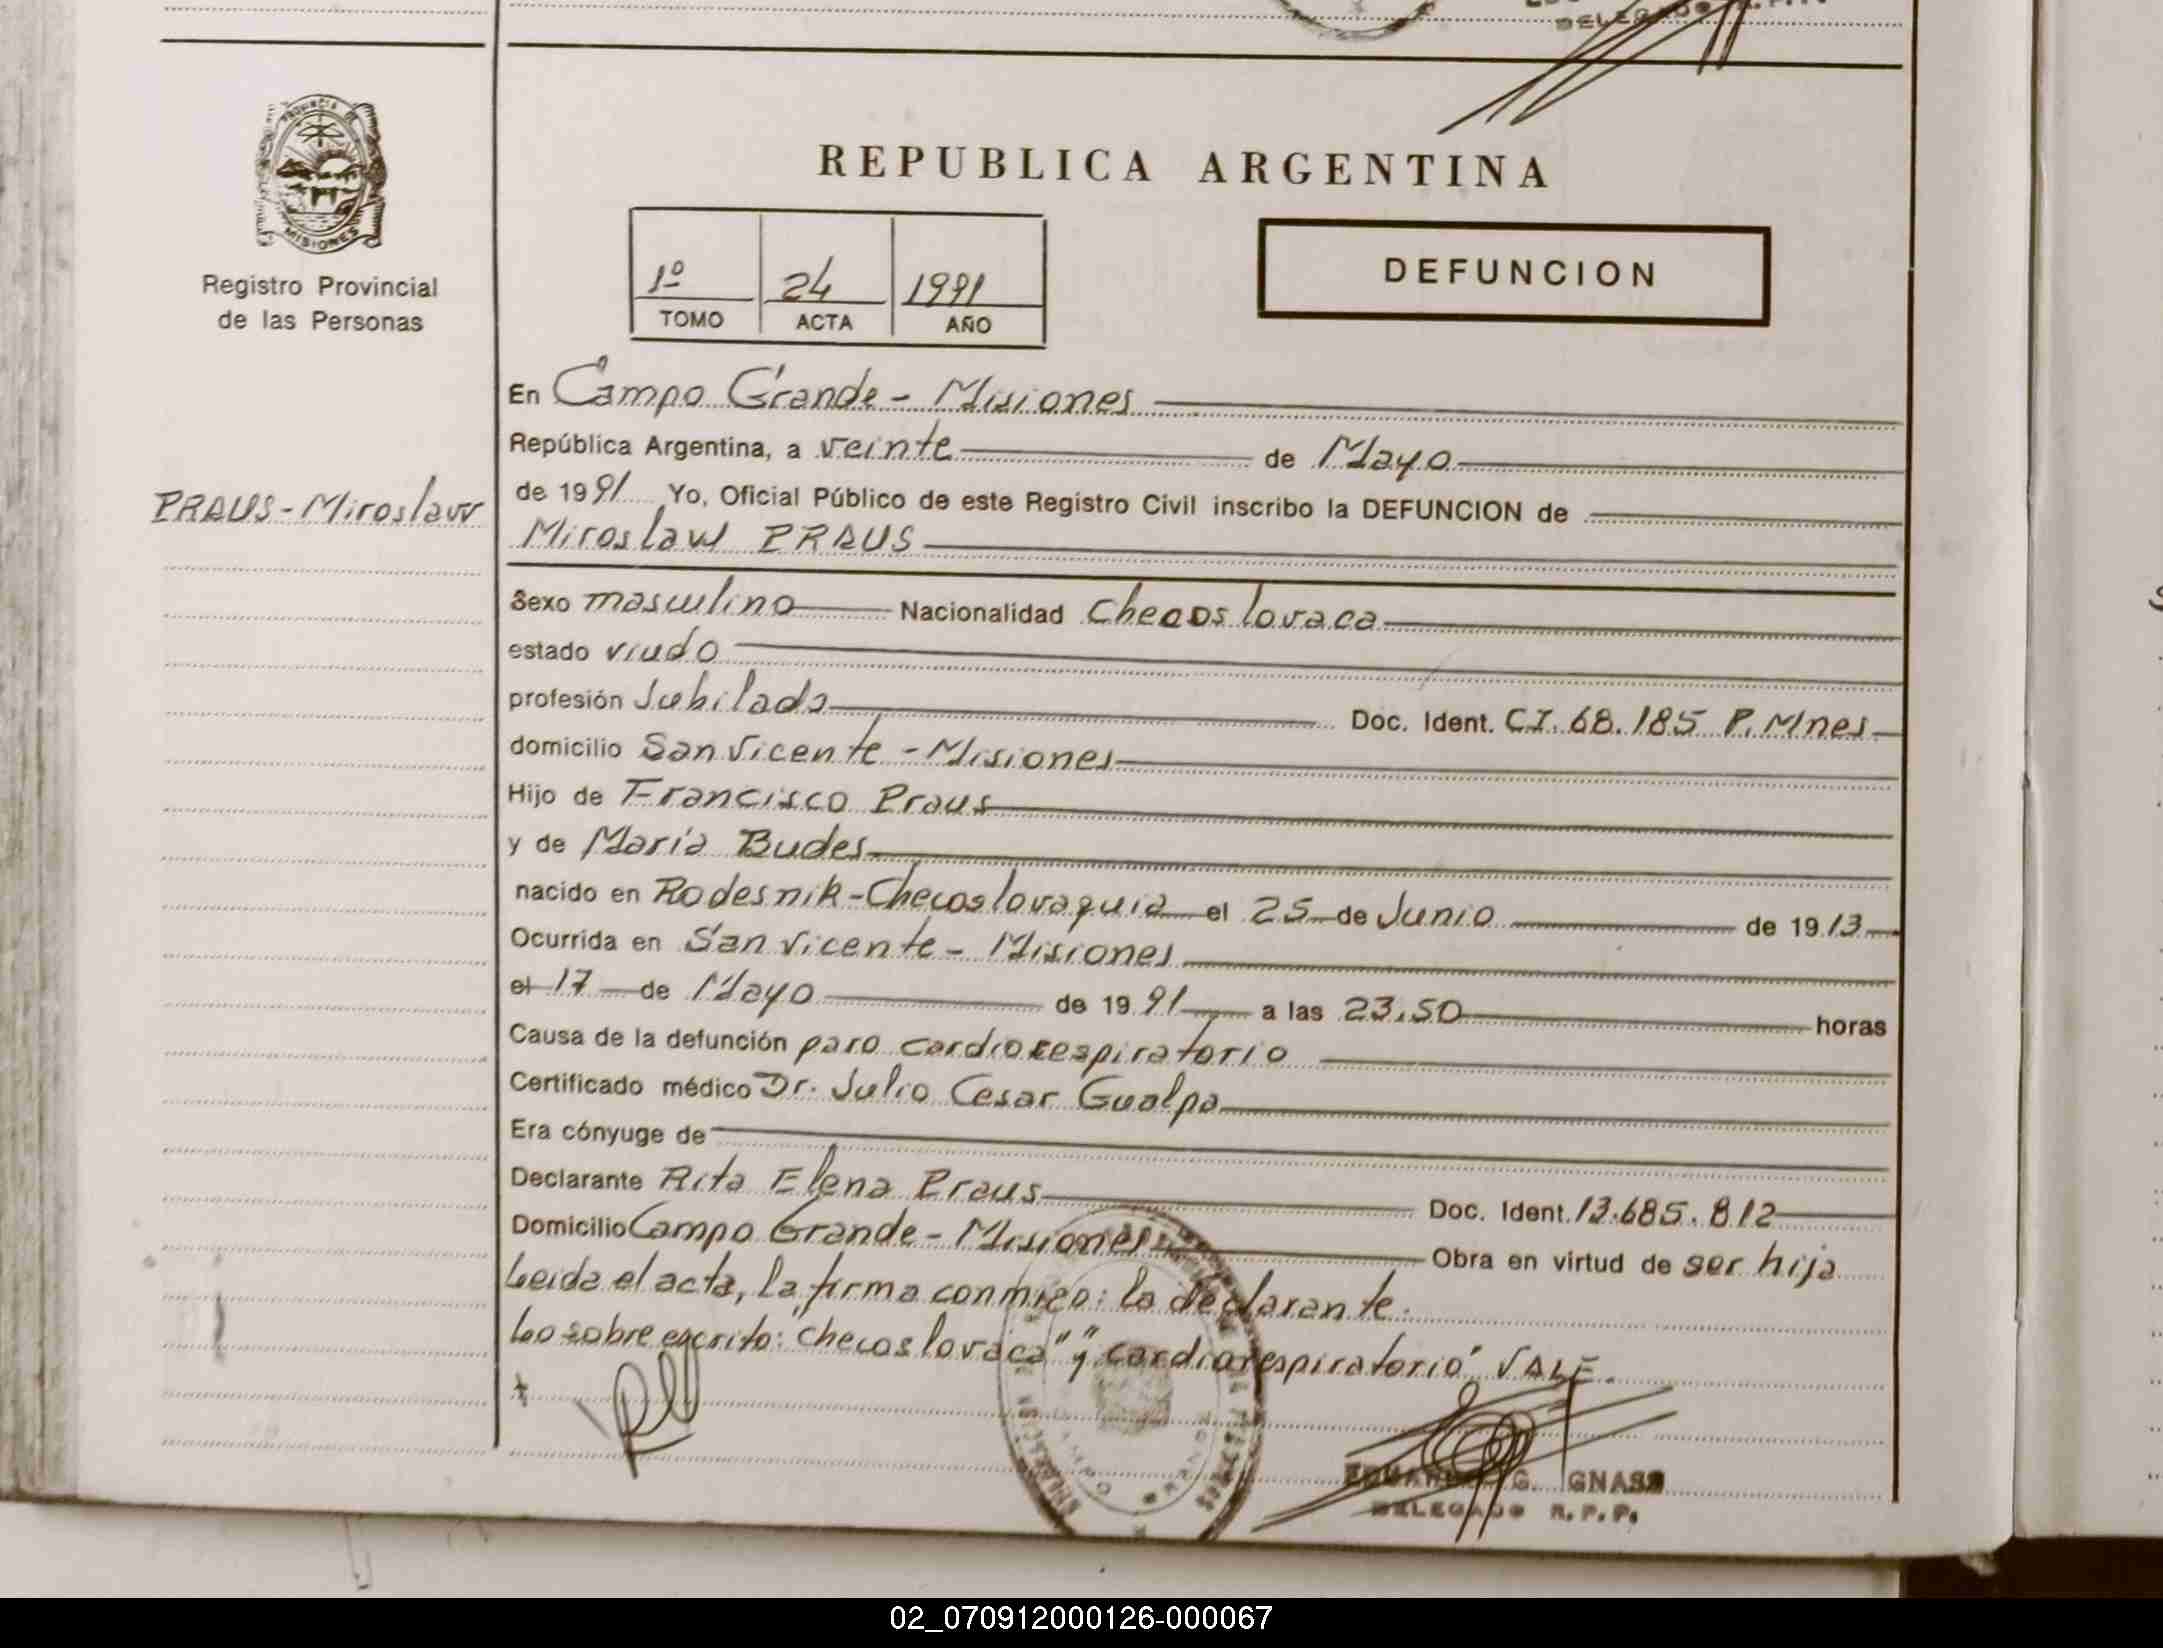 DELEGADO R.P.P.
PROVINCIA
MISIONES
Registro Provincial
de las Personas
REPUBLICA ARGENTINA
1º 24 1991
TOMO ACTA AÑO
DEFUNCION
En Campo Grande - Misiones
República Argentina, a veinte de Mayo
PRAUS - Miroslaw
de 1991 Yo, Oficial Público de este Registro Civil inscribo la DEFUNCION de
Miroslaw PRAUS
Sexo masculino Nacionalidad Checoslovaca
estado viudo
profesión Jubilado Doc. Ident. CI. 68.185 P. Mnes
domicilio San Vicente - Misiones
Hijo de Francisco Praus
y de María Budes
nacido en Rodesnik - Checoslovaquia el 25 de Junio de 1913
Ocurrida en San Vicente - Misiones
el 17 de Mayo de 1991 a las 23,50 horas
Causa de la defunción paro cardiorespiratorio
Certificado médico Dr. Julio Cesar Gualpa
Era cónyuge de
Declarante Rita Elena Praus Doc. Ident. 13.685.812
Domicilio Campo Grande - Misiones Obra en virtud de ser hija
Leida el acta, la firma conmigo: la declarante.
Lo sobre escrito: "Checoslovaca" y "cardiorespiratorio" VALE.
G. GNASS
DELEGADO R.P.P.
02_070912000126-000067